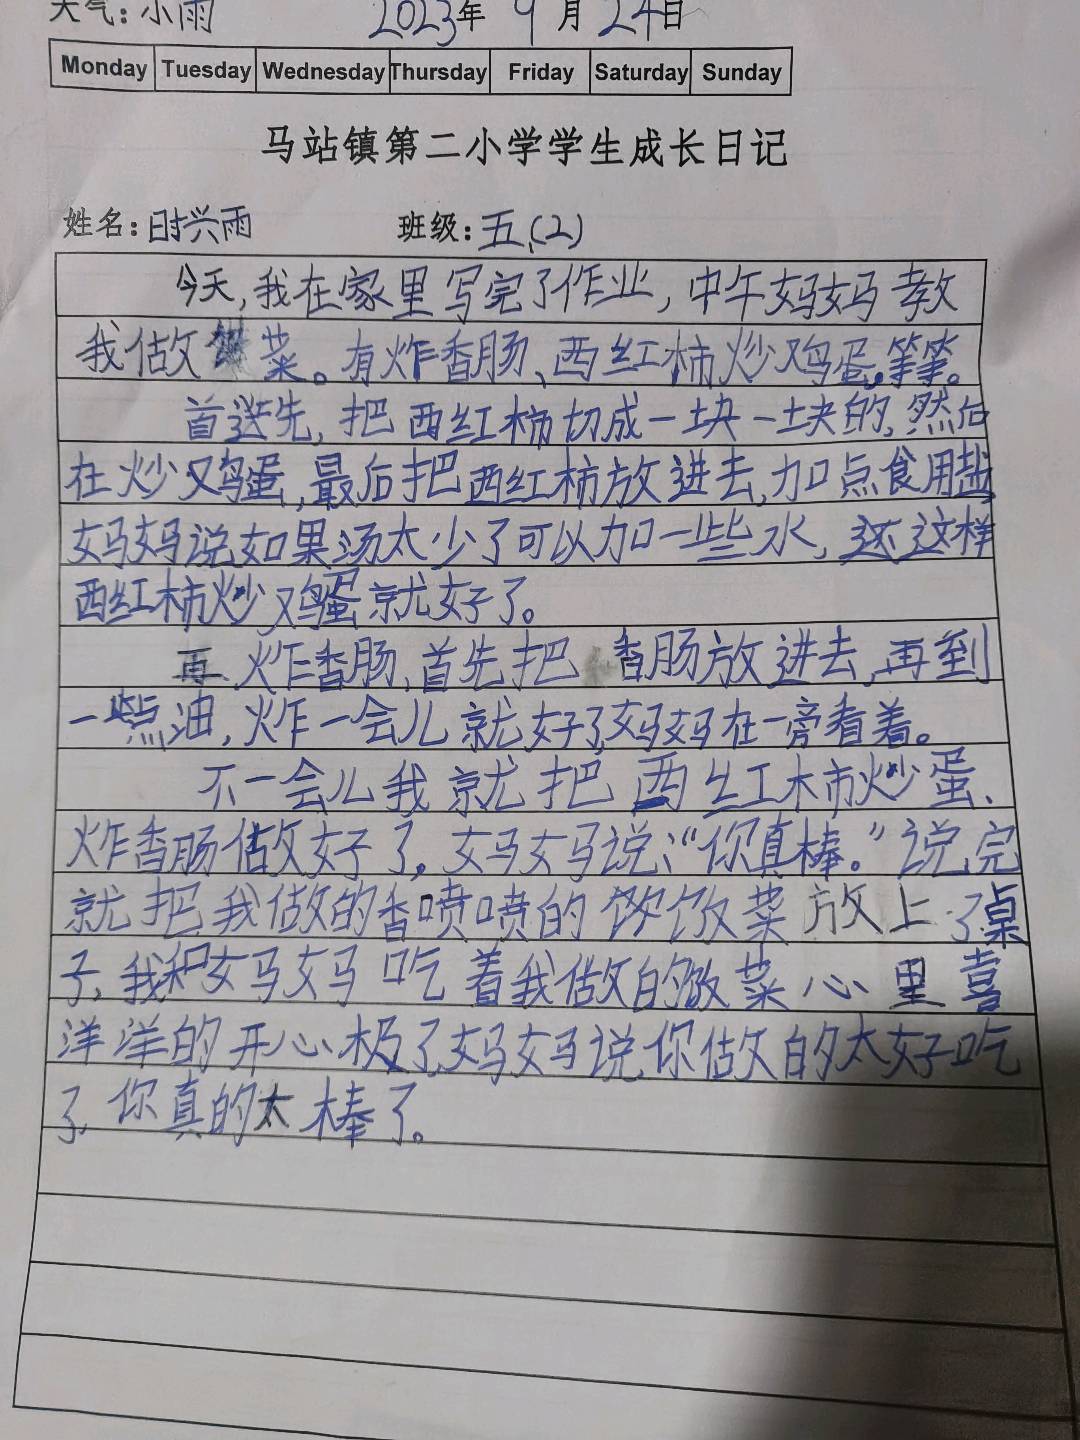 天气：小雨 2023年 9月 24日
Monday Tuesday Wednesday Thursday Friday Saturday Sunday
马站镇第二小学学生成长日记
姓名：时兴雨 班级：五(2)
今天，我在家里写完了作业，中午妈妈教
我做菜。有炸香肠、西红柿炒鸡蛋，等等。
首先，把西红柿切成一块一块的，然后
在炒鸡蛋，最后把西红柿放进去，加点食用盐，
妈妈说如果汤太少了可以加一些水，这样
西红柿炒鸡蛋就好了。
再炸香肠，首先把香肠放进去，再到
一点油，炸一会儿就好了，妈妈在一旁看着。
不一会儿我就把西红柿炒蛋、
炸香肠做好了，妈妈说：“你真棒。”说完
就把我做的香喷喷的饭菜放上了桌
子，我和妈妈吃着我做的饭菜心里喜
洋洋的开心极了，妈妈说你做的太好吃
了，你真的太棒了。